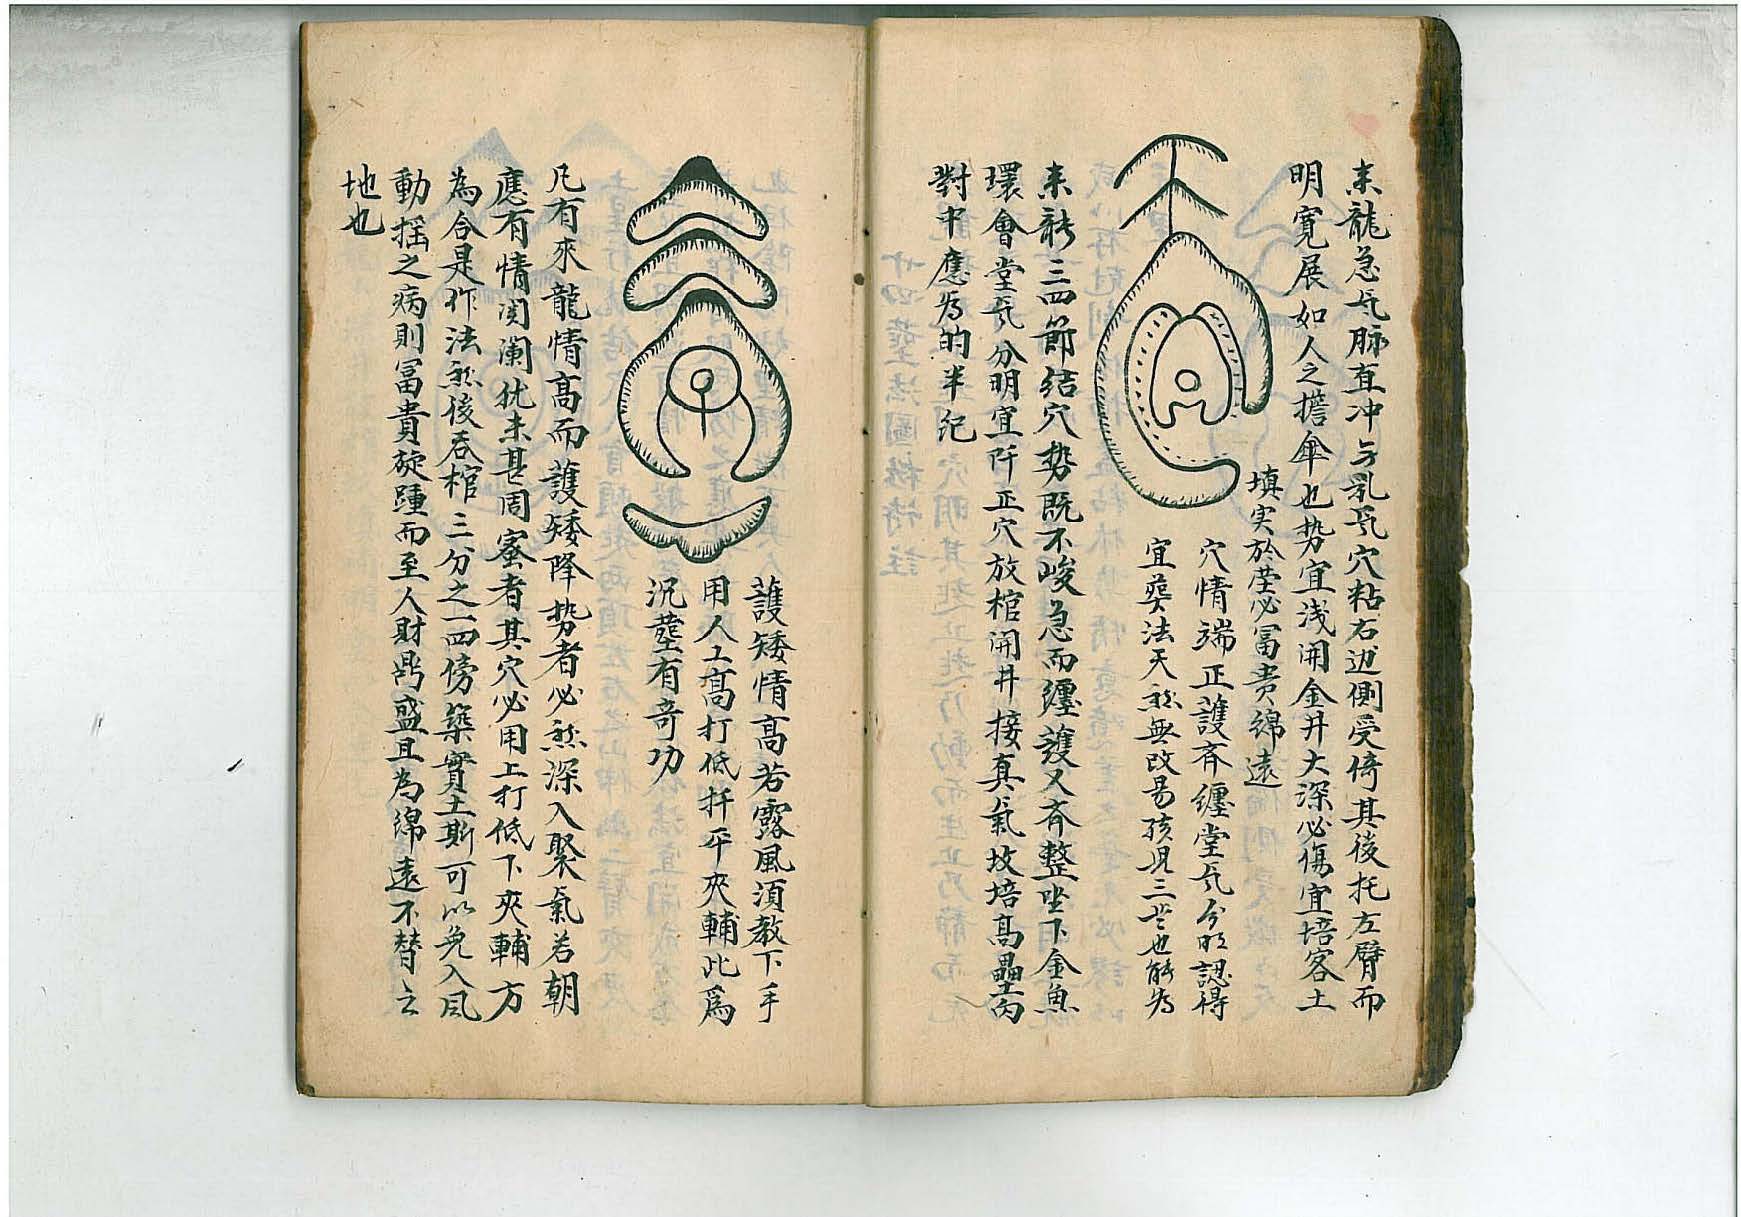 来龍急气脉直冲与乳气穴粘右边側受倚其後托左臂而
明寬展如人之擔傘也势宜浅開金井大深必傷宜培客土
填实於塋必富贵綿遠
穴情端正護齐纏堂气分明認得
宜葬法天然無改易孩児三世也能为
来龍三四節結穴势既不峻急而纏護又齐整坐下金魚
環會堂气分明宜阡正穴放棺開井接真氣坟培高壘丙
對中應为的半纪
護矮情高若露風須教下手
用人工高打低扦平夾輔此爲
況塟有奇功
凡有來龍情高而護矮降势者必然深入聚氣若朝
應有情関瀾犹未甚周宻者其穴必用上打低下夾輔方
為合是作法然後吞棺三分之一四傍築實土斯可以免入風
動揺之病則冨貴旋踵而至人財鼎盛且為綿遠不替之
地也